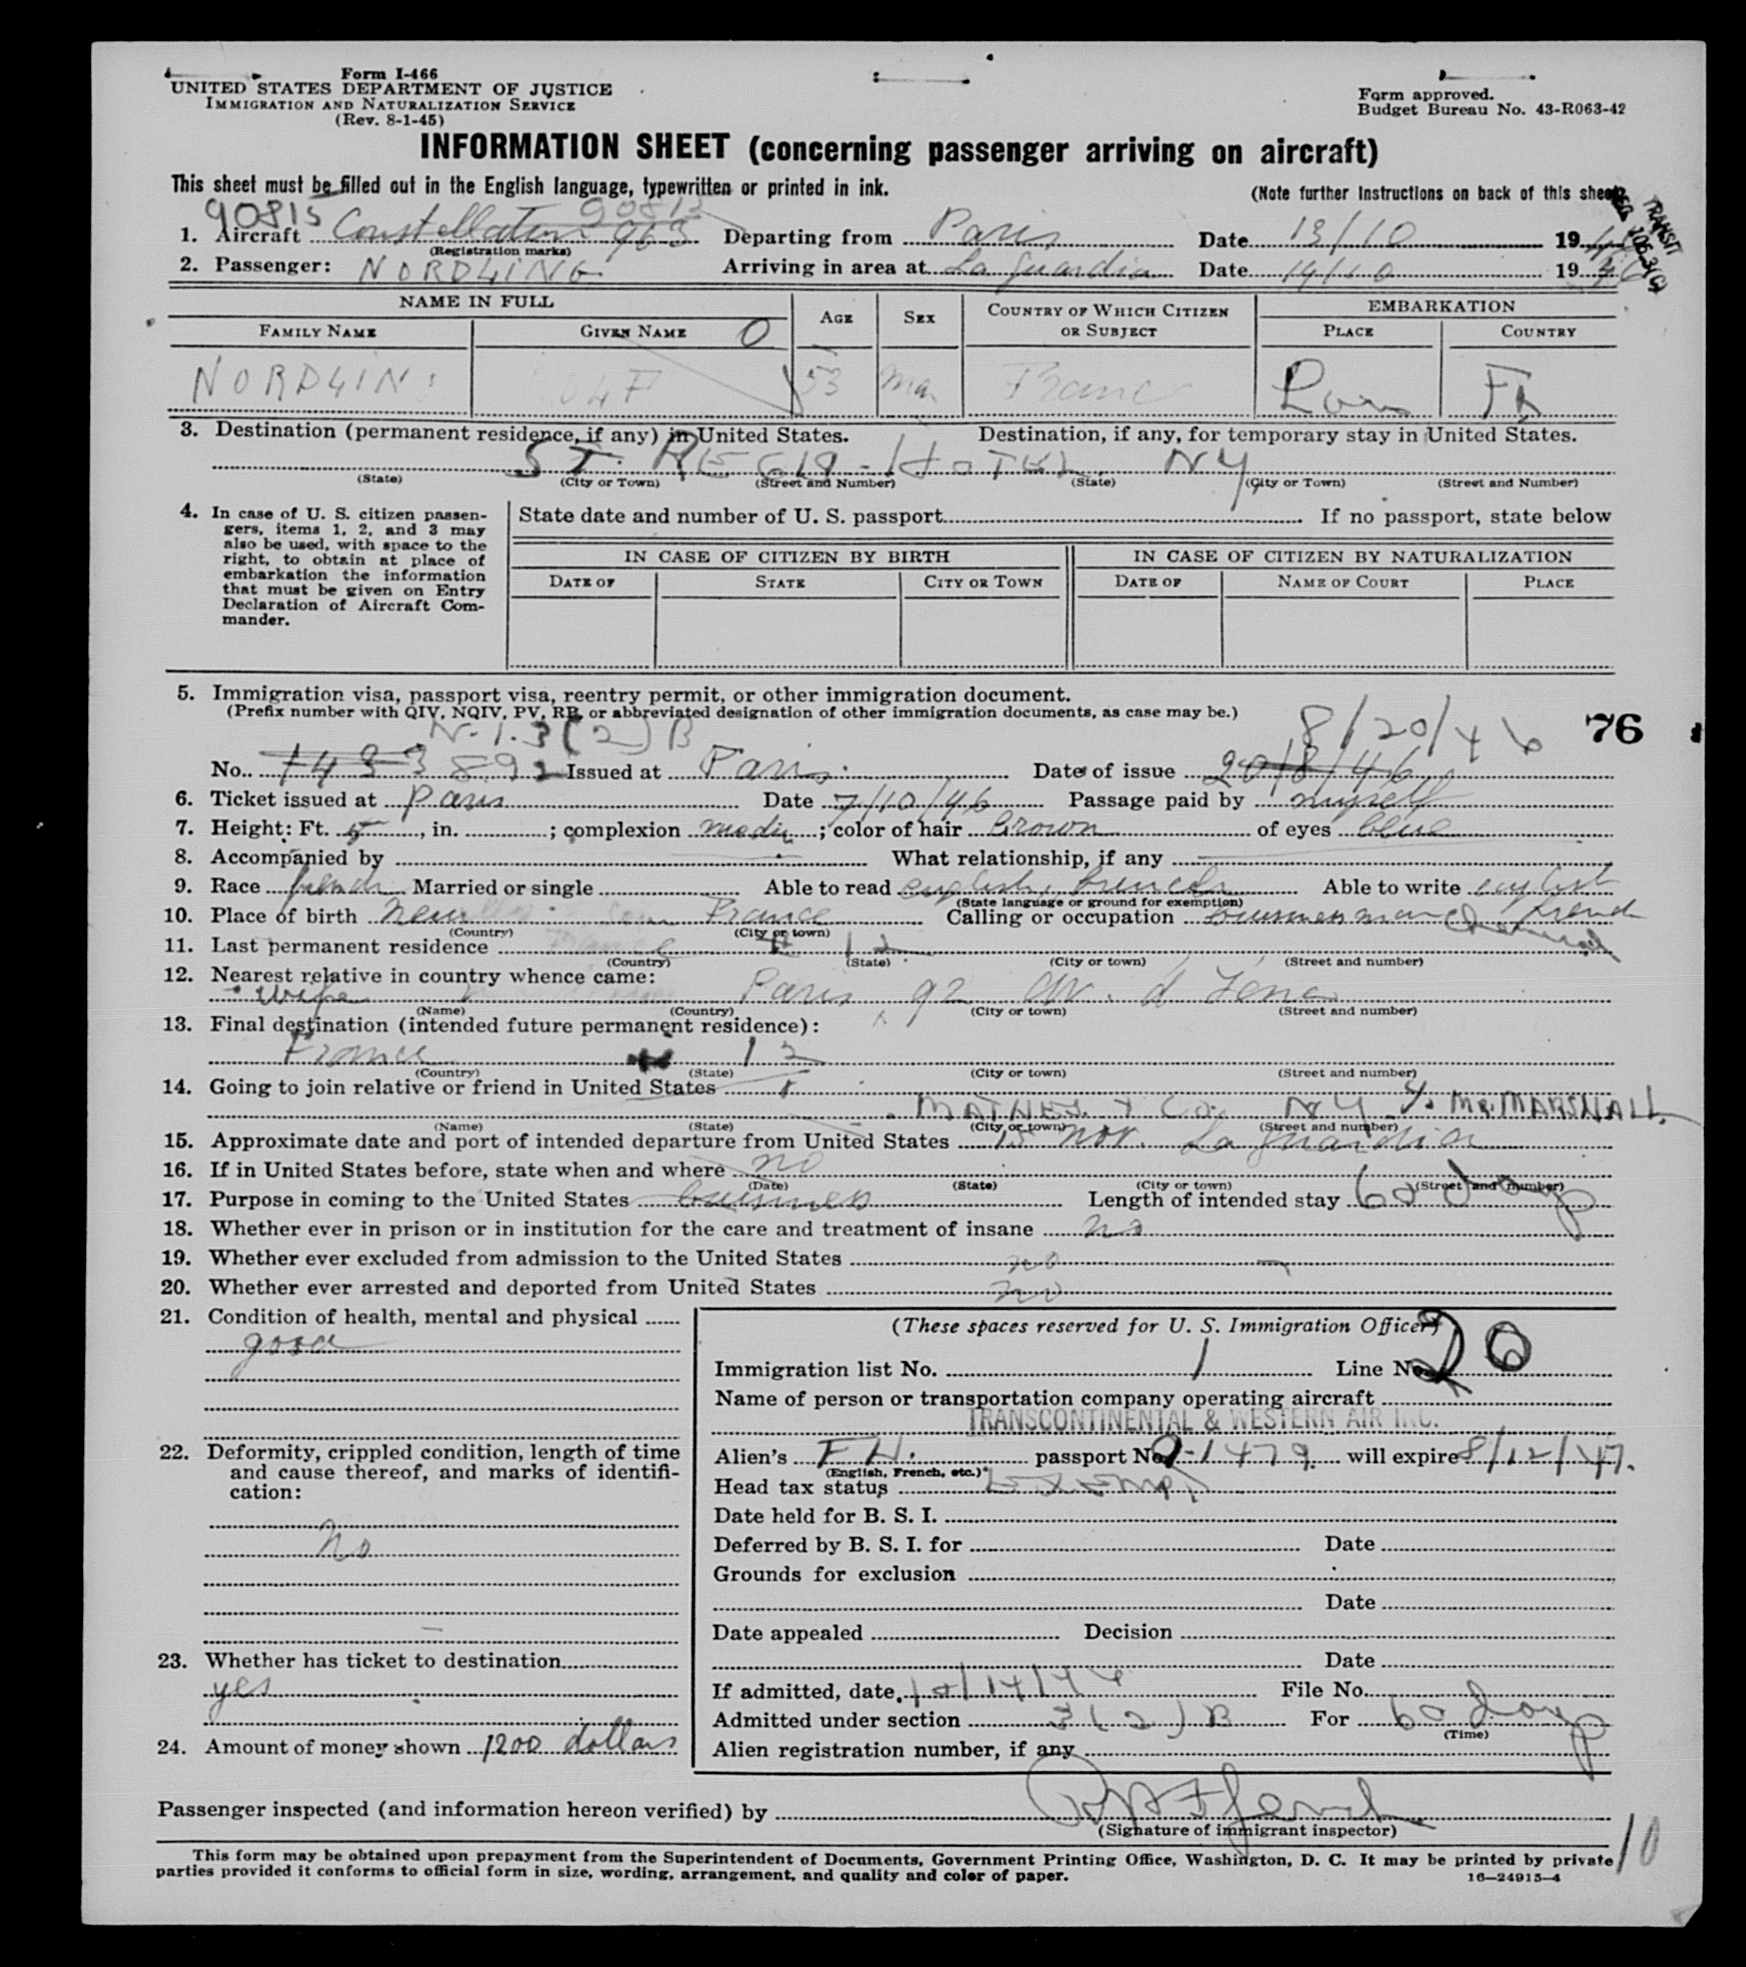 Form I-466
UNITED STATES DEPARTMENT OF JUSTICE
IMMIGRATION AND NATURALIZATION SERVICE
(Rev. 8-1-45)
Form approved.
Budget Bureau No. 43-R063-42
INFORMATION SHEET (concerning passenger arriving on aircraft)
This sheet must be filled out in the English language, typewritten or printed in ink.
(Note further instructions on back of this sheet)
TRANSIT
90815 90813
1. Aircraft Constellation 963 Departing from Paris Date 13/10 1946
(Registration marks)
2. Passenger: NORDLING Arriving in area at La Guardia Date 14/10 1946
NAME IN FULL AGE SEX COUNTRY OF WHICH CITIZEN OR SUBJECT EMBARKATION
FAMILY NAME GIVEN NAME O PLACE COUNTRY
NORDLIN 53 Ma France Paris Fr
3. Destination (permanent residence, if any) in United States. Destination, if any, for temporary stay in United States.
ST. REGIS-HOTEL NY
(State) (City or Town) (Street and Number) (State) (City or Town) (Street and Number)
4. In case of U. S. citizen passengers, items 1, 2, and 3 may also be used, with space to the right, to obtain at place of embarkation the information that must be given on Entry Declaration of Aircraft Commander.
State date and number of U. S. passport If no passport, state below
IN CASE OF CITIZEN BY BIRTH IN CASE OF CITIZEN BY NATURALIZATION
DATE OF STATE CITY OR TOWN DATE OF NAME OF COURT PLACE
5. Immigration visa, passport visa, reentry permit, or other immigration document.
(Prefix number with QIV, NQIV, PV, RP, or abbreviated designation of other immigration documents, as case may be.)
3(2)B 8/20/46 76
No. 892 Issued at Paris Date of issue 20/8/46
6. Ticket issued at Paris Date 7/10/46 Passage paid by myself
7. Height: Ft. 5, in. ; complexion ; color of hair Brown of eyes blue
8. Accompanied by What relationship, if any
9. Race french Married or single Able to read english, french Able to write english
(State language or ground for exemption)
french
10. Place of birth France Calling or occupation businessman
(Country) (City or town)
11. Last permanent residence France 12
(Country) (State) (City or town) (Street and number)
12. Nearest relative in country whence came:
wife Paris 92 Av. d'Iena
(Name) (Country) (City or town) (Street and number)
13. Final destination (intended future permanent residence):
France 12
(Country) (State) (City or town) (Street and number)
14. Going to join relative or friend in United States
& Co. NY Mr. MARSHALL
(Name) (State) (City or town) (Street and number)
15. Approximate date and port of intended departure from United States 15 Nov. La Guardia
16. If in United States before, state when and where no
(Date) (State) (City or town) (Street and number)
17. Purpose in coming to the United States business Length of intended stay 60 days
18. Whether ever in prison or in institution for the care and treatment of insane no
19. Whether ever excluded from admission to the United States no
20. Whether ever arrested and deported from United States no
21. Condition of health, mental and physical
good
22. Deformity, crippled condition, length of time and cause thereof, and marks of identification:
no
23. Whether has ticket to destination
yes
24. Amount of money shown 1200 dollars
(These spaces reserved for U. S. Immigration Officer)
Immigration list No. 1 Line No. 20
Name of person or transportation company operating aircraft
TRANSCONTINENTAL & WESTERN AIR INC.
Alien's FH. passport No. 9-1479 will expire 8/12/47.
(English, French, etc.)
Head tax status Exempt
Date held for B. S. I.
Deferred by B. S. I. for Date
Grounds for exclusion
Date
Date appealed Decision
Date
If admitted, date 10/14/46 File No.
Admitted under section 3(2)B For 60 days
(Time)
Alien registration number, if any
Passenger inspected (and information hereon verified) by
(Signature of immigrant inspector)
10
This form may be obtained upon prepayment from the Superintendent of Documents, Government Printing Office, Washington, D. C. It may be printed by private
parties provided it conforms to official form in size, wording, arrangement, and quality and color of paper.
16—24915-4